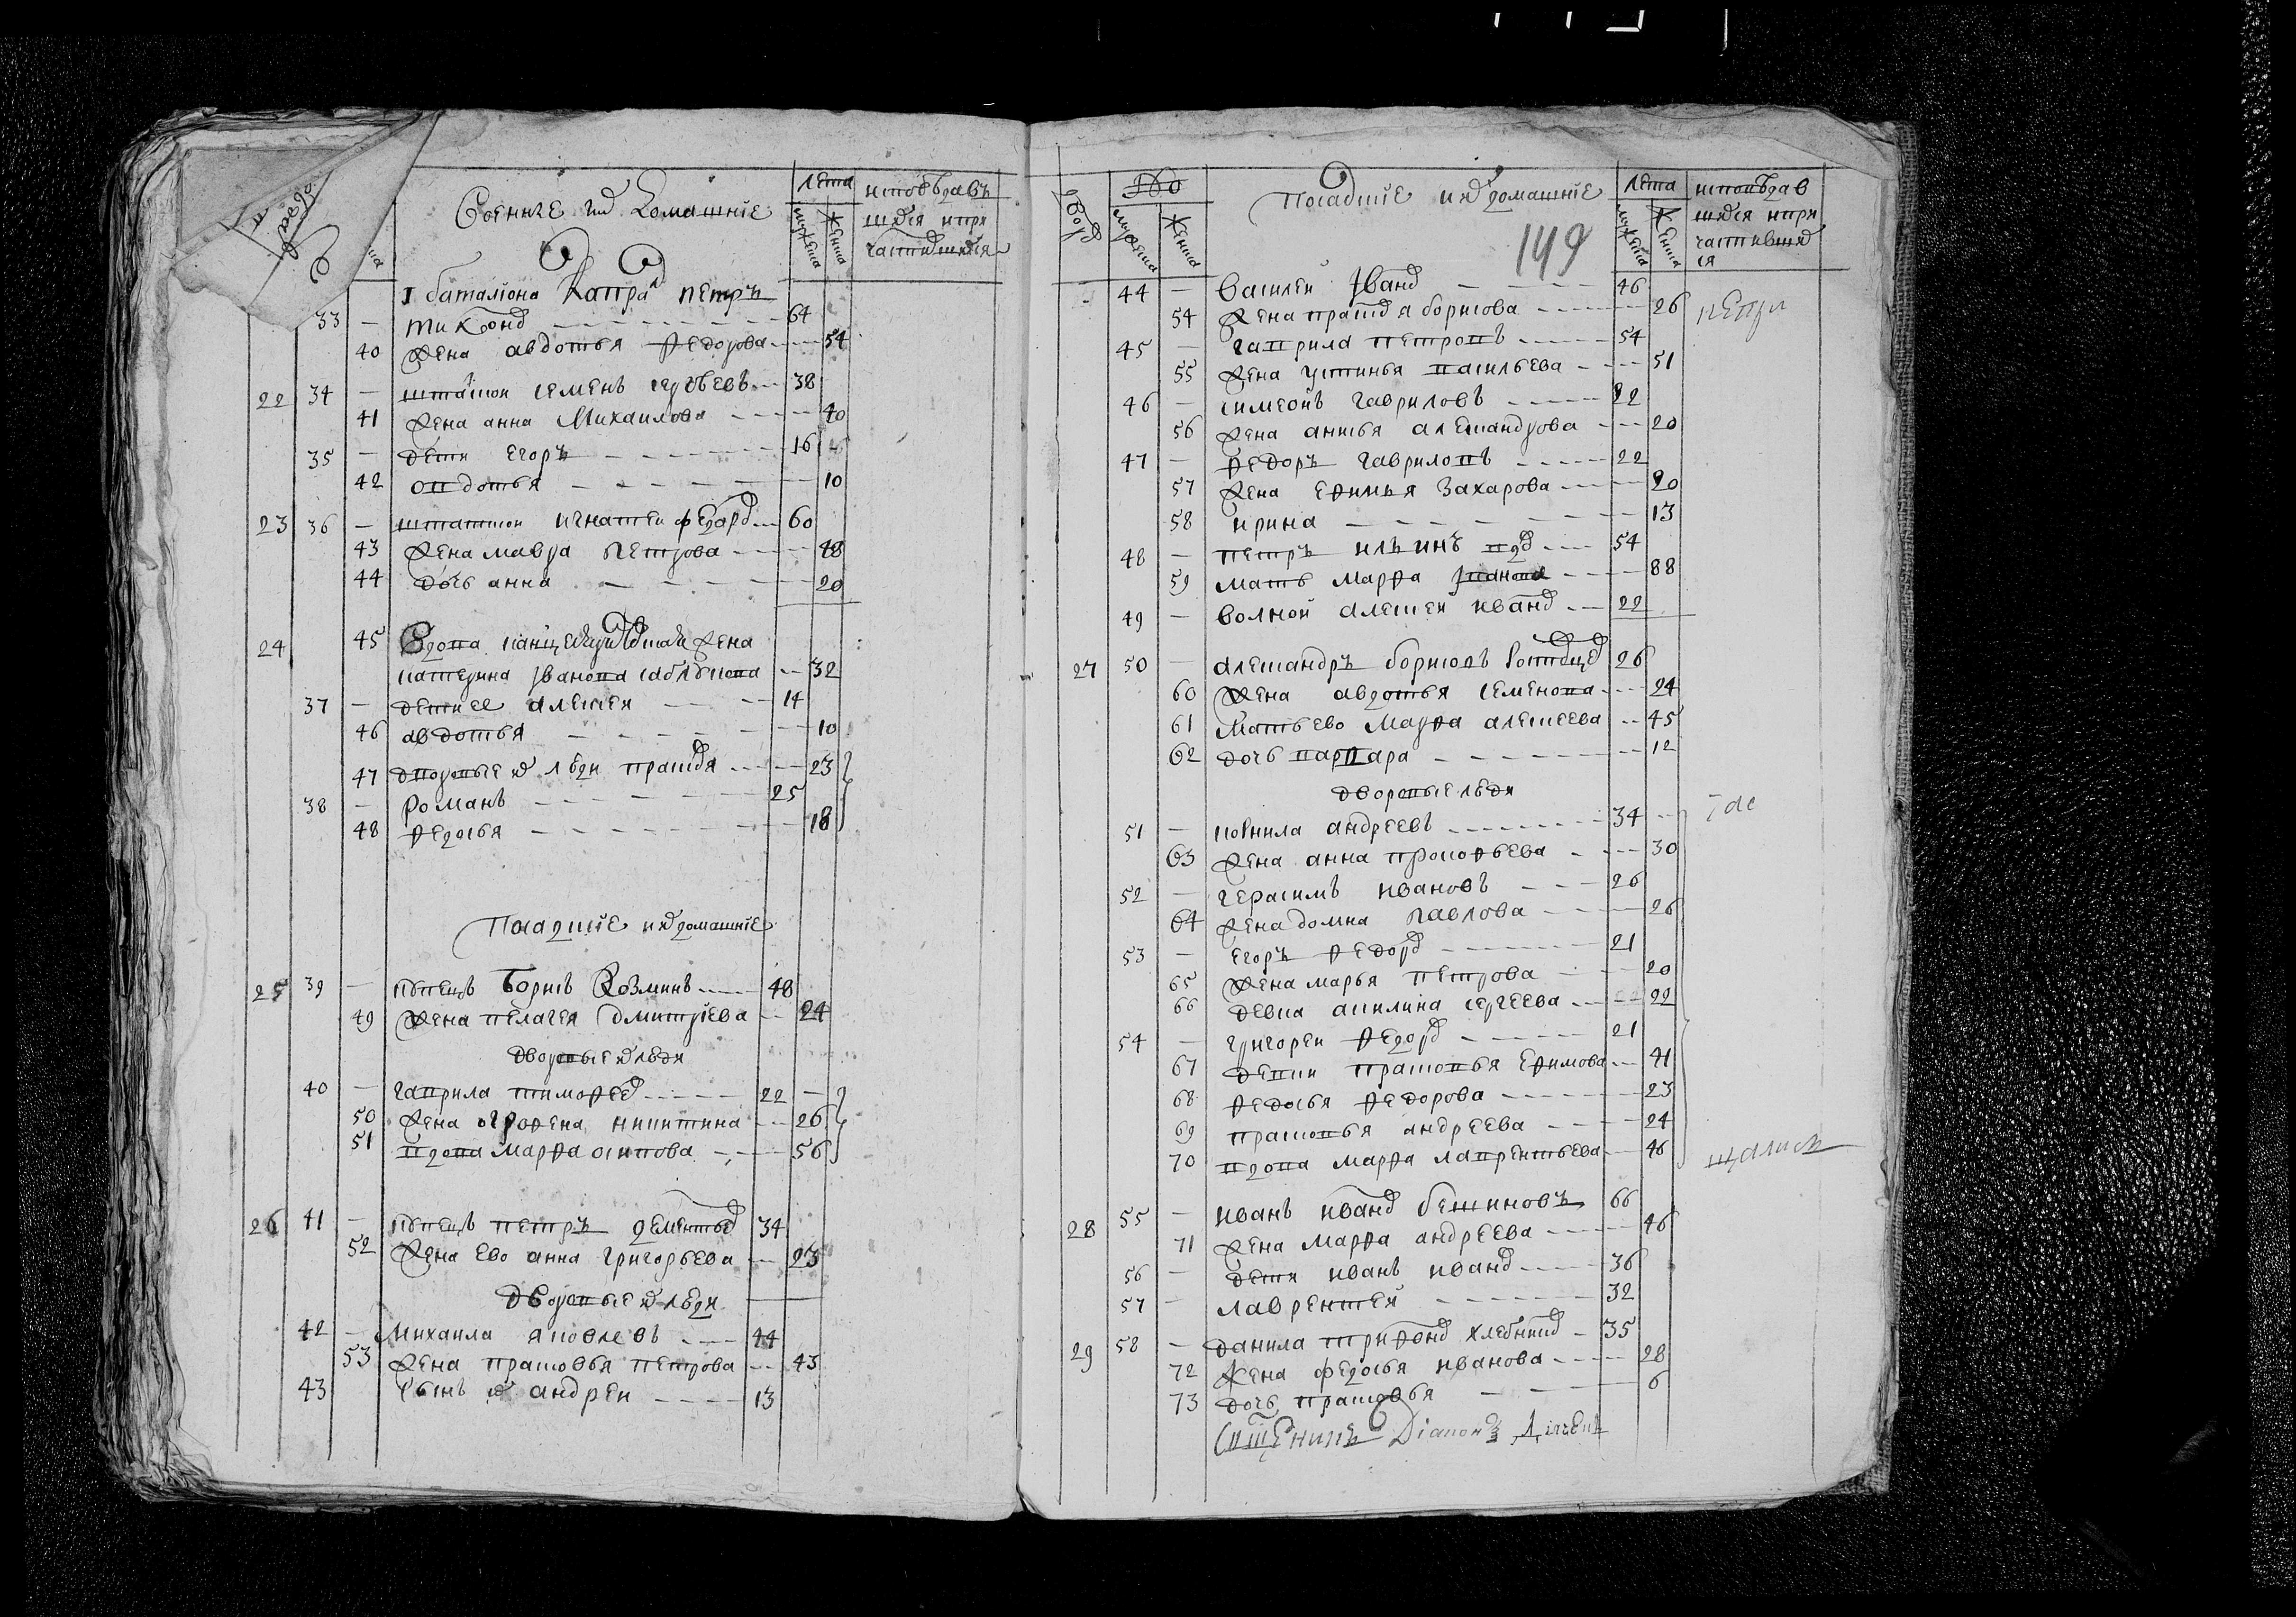 Военные и их домашние
лета
исповедавъ
мужеска
женска
шияся и при
частившияся
1 баталиона капрал петръ
33 — тихонов 64
40 жена авдотья федорова 54
22 34 — штатнои семенъ сергѣевъ 38
41 жена анна михаилова 40
35 — дети егоръ 16
42 овдотья 10
23 36 — штатнои игнатеи федоров 60
43 жена мавра петрова 48
44 дочь анна 20
24 45 вдова жена
катерина иванова саблукова 32
37 — дети ее алексеи 14
46 авдотья 10
47 дворовые их люди прасковя 23
38 — романъ 25
48 федосья 18
Посадцкие и их домашние
25 39 — купецъ борисъ козминъ 48
49 жена пелагея дмитриева 24
дворовые их люди
40 — гаврила тимофеев 22 —
50 жена огрофена никитина 26
51 вдова марфа осипова 56
26 41 — купецъ петръ дементьев 34
52 жена ево анна григорьева 23
дворовые их люди
42 — михаила яковлевъ 44
53 жена прасковья петрова 43
43 сынъ их андреи 13
дворов
мужеска
женска
посадцкие и их домашние
149
лета
мужеска
женска
исповѣдав
шияся и при
частившия
ся
44 — василеи иванов 46
54 жена прасковя борисова 26
45 — гаврила петровъ 54
55 жена устинья васильева 51
46 — симеонъ гавриловъ 22
56 жена анисья александрова 20
47 — федоръ гавриловъ 22
57 жена ефимья захарова 20
58 ирина 13
48 — петръ ильинъ вдов 54
59 мать марфа иванова 88
49 — волнои алексеи иванов 22
27 50 — александръ борисовъ 26
60 жена авдотья семенова 24
61 мать ево марфа алексеева 45
62 дочь варвара 12
дворовые люди
51 — корнила андреевъ 34
63 жена анна прокофьева 30
52 — герасимъ ивановъ 26
64 жена домна павлова 26
53 — егоръ федоров 21
65 жена марья петрова 20
66 девка акилина сергеева 22
54 — григореи федоров 21
67 девки прасковья ефимова 41
68 федосья федорова 23
69 прасковья андреева 24
70 вдова марфа лаврентьева 46
28 55 — иванъ иванов 66
71 жена марфа андреева 46
56 — дети иванъ иванов 36
57 — лаврентеи 32
29 58 — данила трифонов хлебников 35
72 жена федосья иванова 28
73 дочь прасковья 6